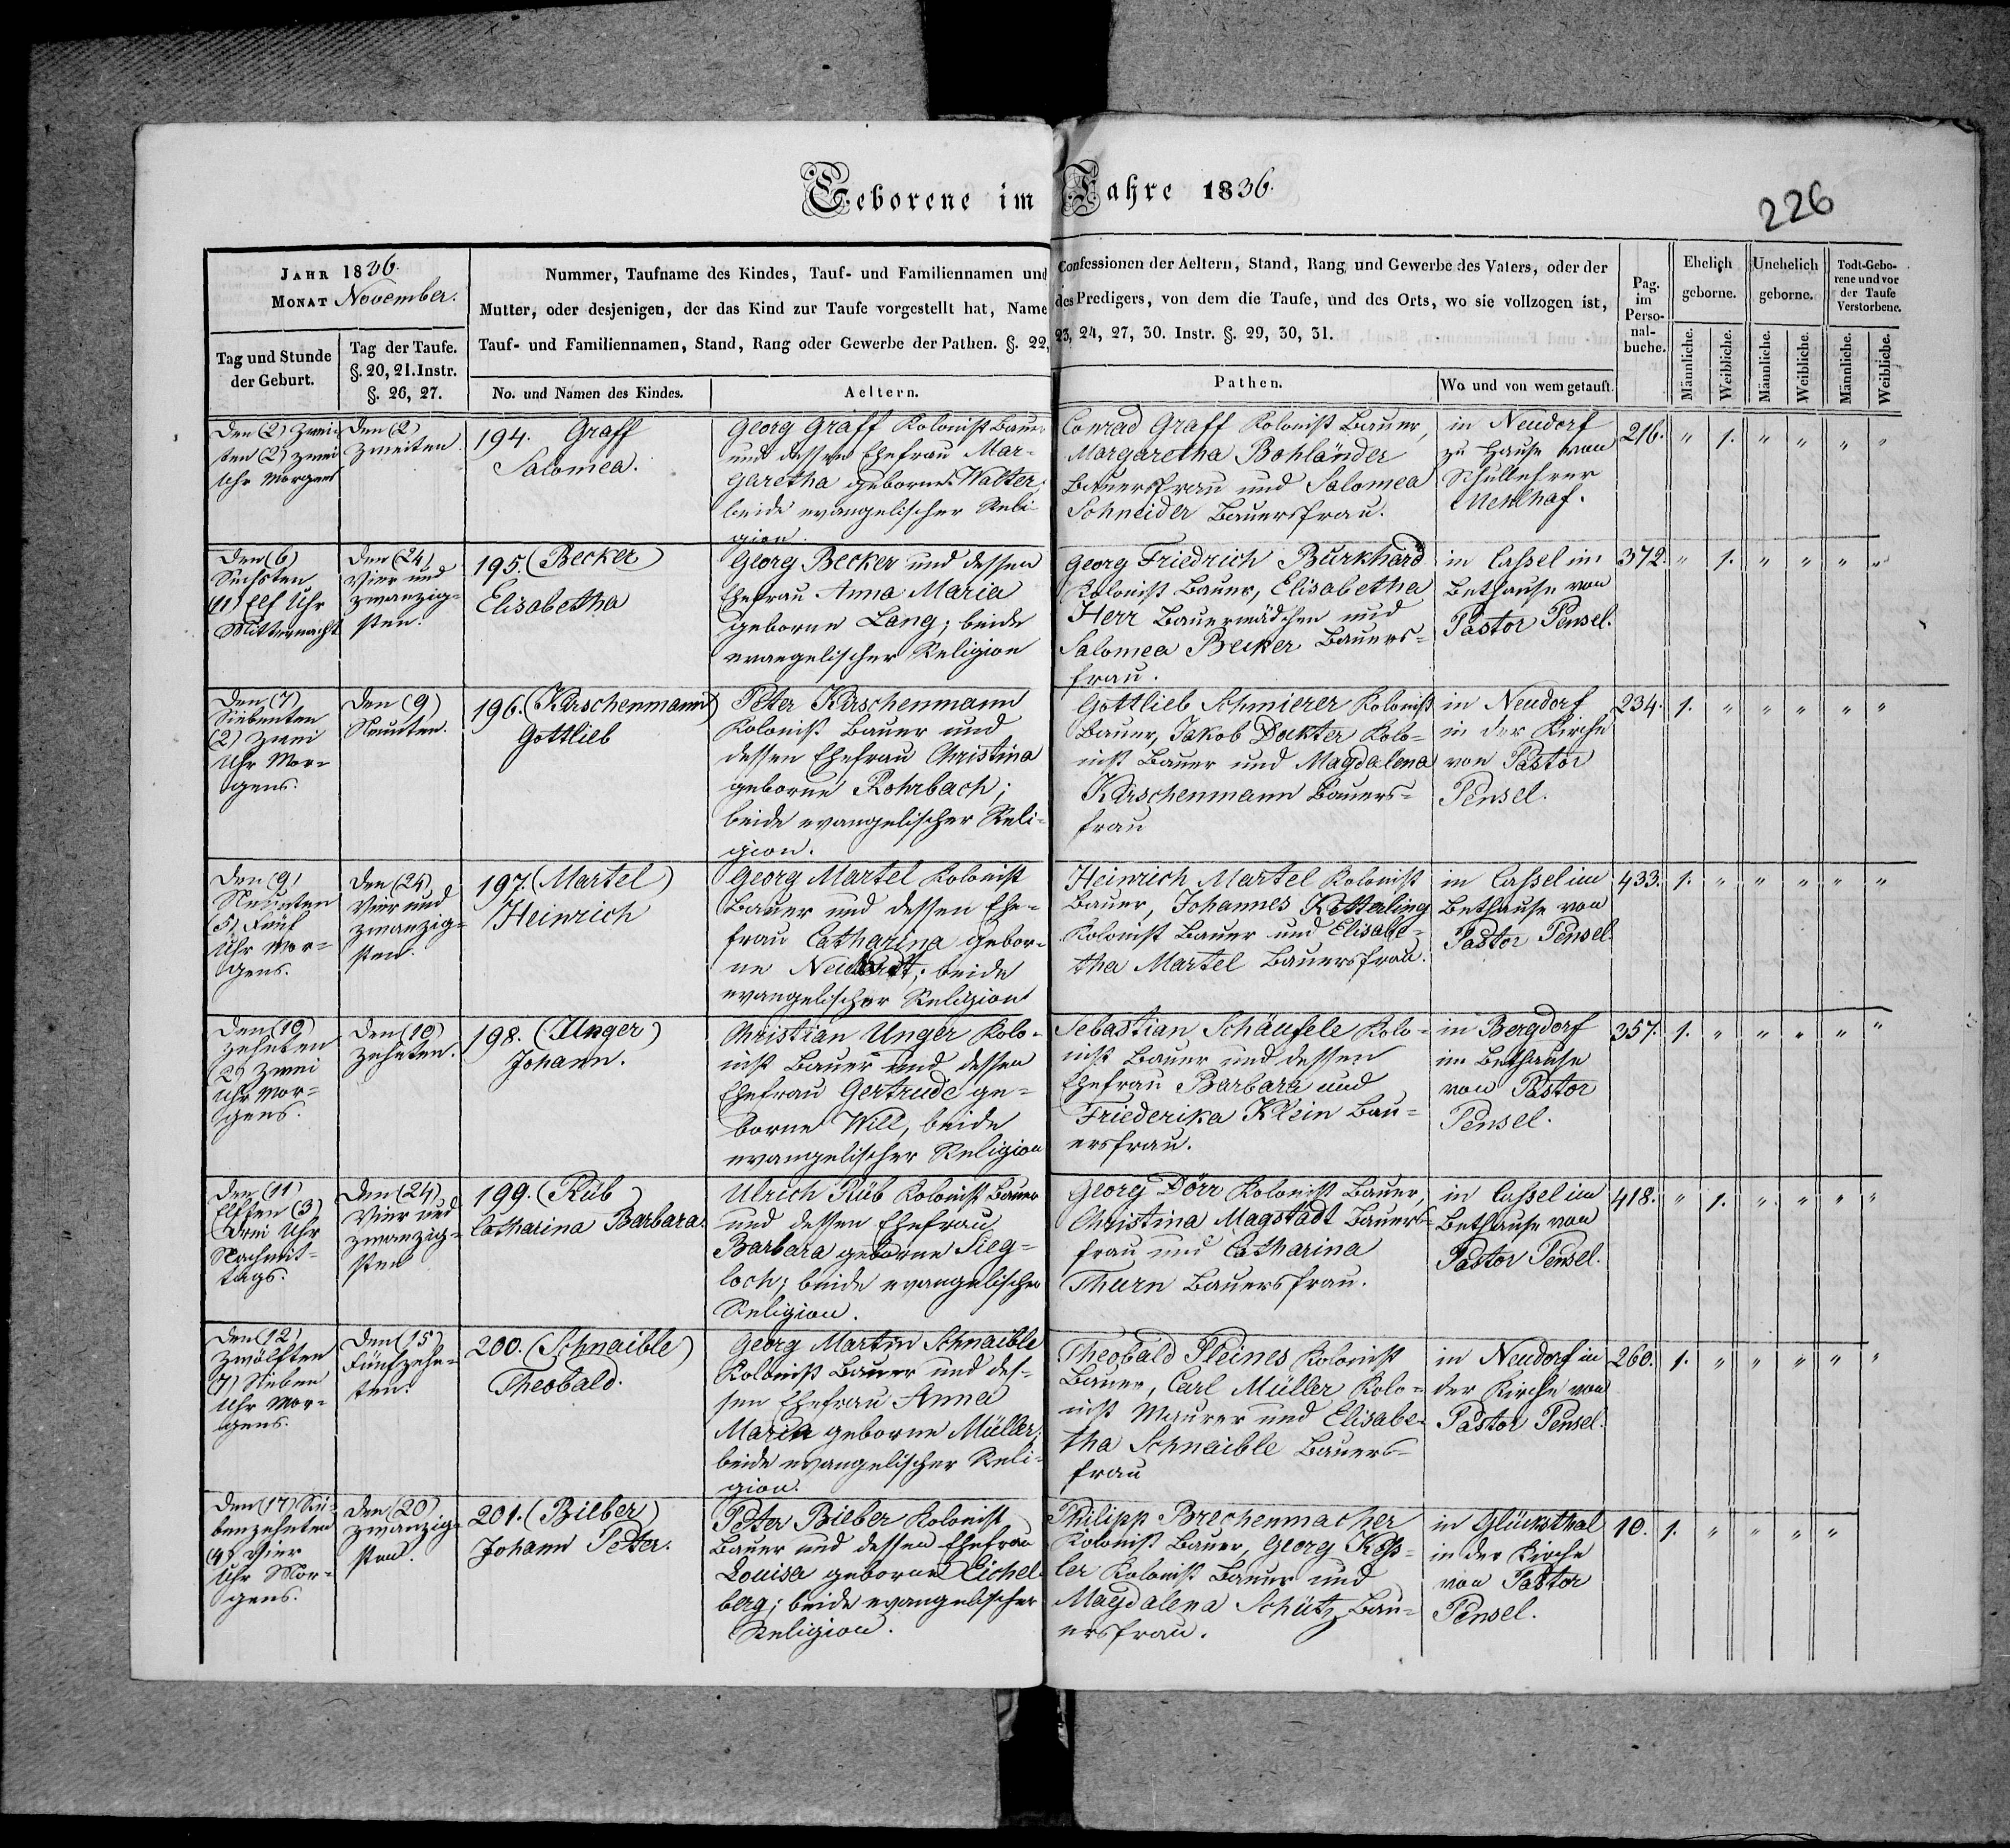 Geborene im Jahre 1836.
226
JAHR 1836.
MONAT November.
Nummer, Taufname des Kindes, Tauf- und Familiennamen und Confessionen der Aeltern, Stand, Rang und Gewerbe des Vaters, oder der
Mutter, oder desjenigen, der das Kind zur Taufe vorgestellt hat, Name des Predigers, von dem die Taufe, und des Orts, wo sie vollzogen ist,
Tauf- und Familiennamen, Stand, Rang oder Gewerbe der Pathen. §. 22, 23, 24, 27, 30. Instr. §. 29, 30, 31.
Tag und Stunde
der Geburt.
Tag der Taufe.
§. 20, 21. Instr.
§. 26, 27.
No. und Namen des Kindes.
Aeltern.
Pathen.
Wo und von wem getauft.
Pag.
im
Perso-
nal-
buche.
Ehelich
geborne.
Unehelich
geborne.
Todt-Gebo-
rene und vor
der Taufe
Verstorbene.
Männliche.
Weibliche.
Männliche.
Weibliche.
Männliche.
Weibliche.
Den (2) Zwei-
ten (2) zwei
Uhr Morgens
Den (2)
Zweiten.
194. Graff
Salomea.
Georg Graff Kolonist Bauer
und dessen Ehefrau Mar-
garetha geborne Walter,
beide evangelischer Reli-
gion.
Conrad Graff Kolonist Bauer,
Margaretha Bohländer
Bauersfrau und Salomea
Schneider Bauersfrau.
in Neudorf
zu Hause von
Schullehrer
Mehlhaf.
216. " 1. " " " "
Den (6)
Sechsten
(11) Elf Uhr
Mitternacht
Den (24)
Vier und
zwanzig-
sten.
195. (Becker)
Elisabetha
Georg Becker und dessen
Ehefrau Anna Maria
geborne Lang; beide
evangelischer Religion
Georg Friedrich Burkhard
Kolonist Bauer, Elisabetha
Herr Bauermädchen und
Salomea Becker Bauers-
frau.
in Cassel im
Bethause von
Pastor Pensel.
372. " 1. " " " "
Den (7)
Siebenten
(2) zwei
Uhr Mor-
gens.
Den (9)
Neunten.
196. (Kirschenmann)
Gottlieb
Peter Kirschenmann
Kolonist Bauer und
dessen Ehefrau Christina
geborne Rohrbach;
beide evangelischer Reli-
gion.
Gottlieb Schmierer Kolonist
Bauer, Jakob Dockter Kolo-
nist Bauer und Magdalena
Kirschenmann Bauers-
frau
in Neudorf
in der Kirche
von Pastor
Pensel.
234. 1. " " " " "
Den (9)
Neunten
(5) Fünf
Uhr Mor-
gens.
Den (24)
Vier und
zwanzig-
sten.
197. (Martel)
Heinrich
Georg Martel Kolonist
Bauer und dessen Ehe-
frau Catharina gebor-
ne Neidhardt; beide
evangelischer Religion
Heinrich Martel Kolonist
Bauer, Johannes Ketterling
Kolonist Bauer und Elisabe-
tha Martel Bauersfrau.
in Cassel im
Bethause von
Pastor Pensel.
433. 1. " " " " "
Den (10)
Zehnten
(2) zwei
Uhr Mor-
gens.
Den (10)
Zehnten.
198. (Unger)
Johann.
Christian Unger Kolo-
nist Bauer und dessen
Ehefrau Gertrude ge-
borne Will, beide
evangelischer Religion
Sebastian Schäufele Kolo-
nist Bauer und dessen
Ehefrau Barbara und
Friederika Klein Bau-
ersfrau.
in Bergdorf
im Bethause
von Pastor
Pensel.
357. 1. " " " " "
Den (11)
Elften (3)
Drei Uhr
Nachmit-
tags.
Den (24)
Vier und
zwanzig-
sten
199. (Rüb)
Catharina Barbara.
Ulrich Rüb Kolonist Bauer
und dessen Ehefrau
Barbara geborne Sieg-
loch; beide evangelischer
Religion.
Georg Dörr Kolonist Bauer,
Christina Magstadt Bauers-
frau und Catharina
Thurn Bauersfrau.
in Cassel im
Bethause von
Pastor Pensel.
418. " 1. " " " "
Den (12)
Zwölften
(7) Sieben
Uhr Mor-
gens.
Den (15)
Fünfzehn-
ten.
200. (Schnaible)
Theobald.
Georg Martin Schnaible
Kolonist Bauer und des-
sen Ehefrau Anna
Maria geborne Müller,
beide evangelischer Reli-
gion.
Theobald Pleines Kolonist
Bauer, Carl Müller Kolo-
nist Maurer und Elisabe-
tha Schnaible Bauers-
frau
in Neudorf in
der Kirche von
Pastor Pensel.
260. 1. " " " " "
Den (17) Sie-
benzehnten
(4) Vier
Uhr Mor-
gens.
Den (20)
Zwanzig-
sten.
201. (Bieber)
Johann Peter.
Peter Bieber Kolonist
Bauer und dessen Ehefrau
Louisa geborne Eichel-
berg; beide evangelischer
Religion.
Philipp Brechenmacher
Kolonist Bauer, Georg Keß-
ler Kolonist Bauer und
Magdalena Schütz Bau-
ersfrau.
in Glücksthal
in der Kirche
von Pastor
Pensel.
10. 1. " " " "